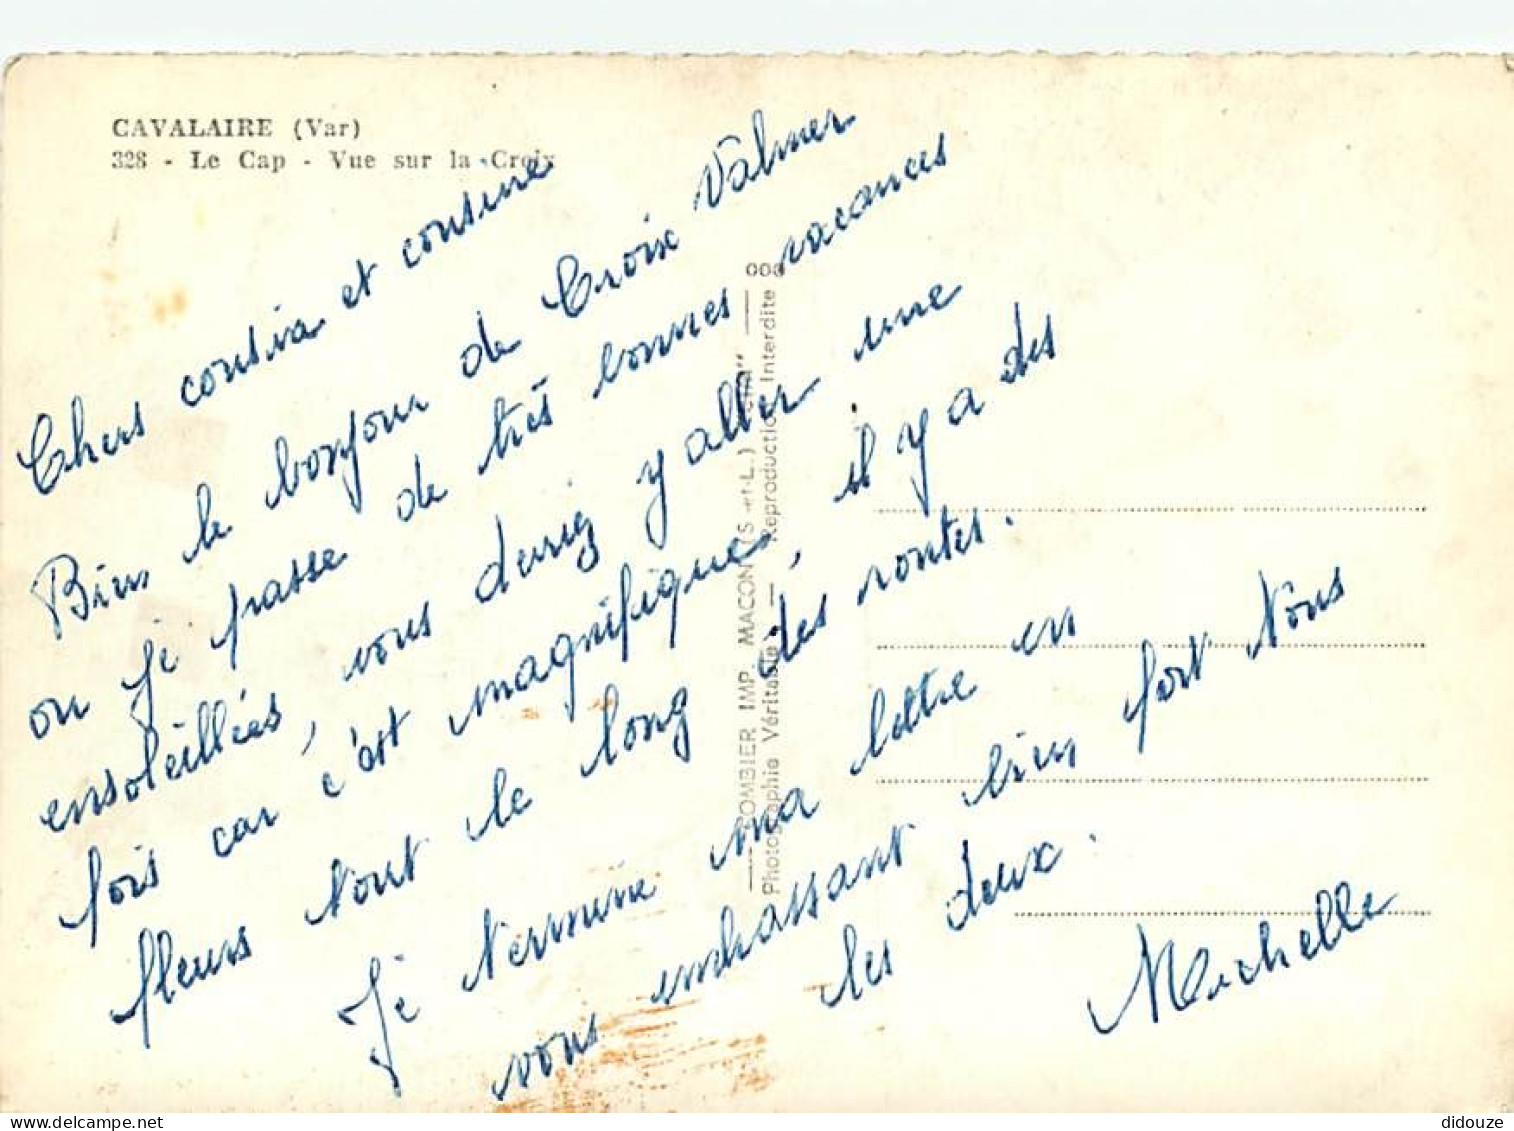 CAVALAIRE (Var)
328 - Le Cap - Vue sur la Croix
Chers cousin et cousine
Bien le bonjour de Croix Valmer
ou je passe de très bonnes vacances
ensoleillées, vous deviez y aller une
fois car c'est magnifique, il y a des
fleurs tout le long des routes.
Je termine ma lettre en
vous embrassant bien fort Vous
les deux.
Michelle
COMBIER IMP. MACON (S.-et-L.)
Photographie Véritable — Reproduction Interdite
didouze